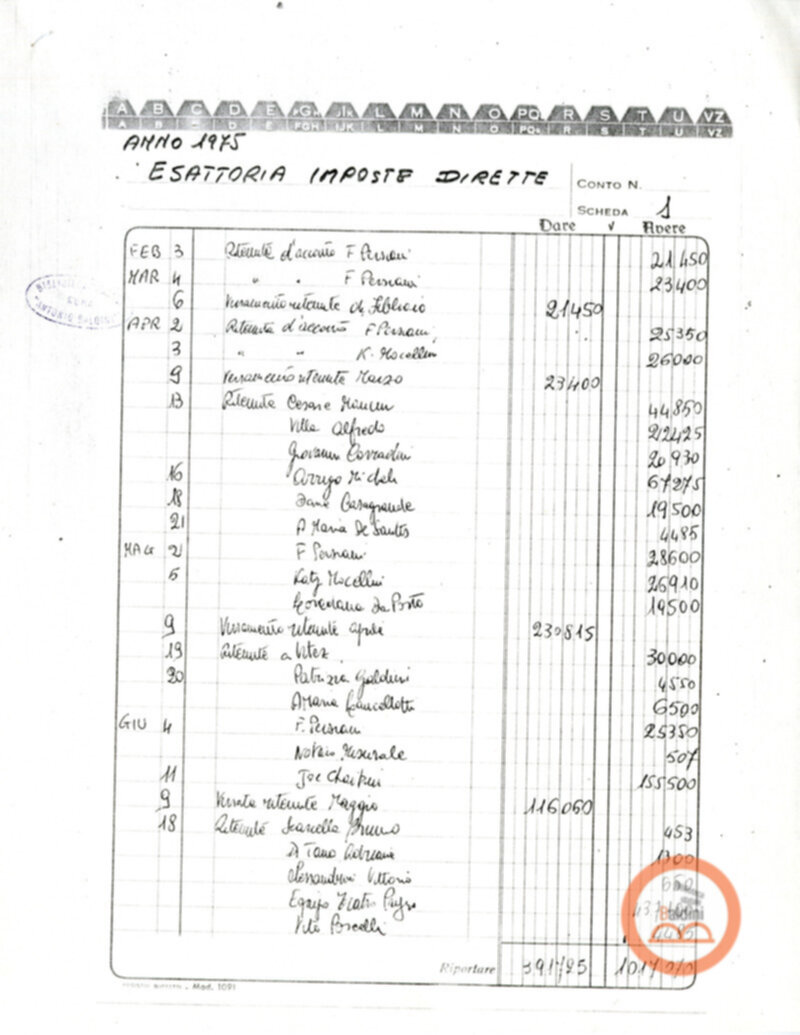 A B C D E FGH IJK L M N O PQ R S T U VZ
A B C D E FGH IJK L M N O PQ R S T U VZ
ANNO 1975
ESATTORIA IMPOSTE DIRETTE
CONTO N.
SCHEDA 1
Dare √ Avere
FEB 3 Ritenute d'acconto F Persani 21450
MAR 4 " " F Persani 23400
6 Versamento ritenute di Febbraio 21450
APR 2 Ritenuta d'acconto F Persani 25350
3 " " K. Mocellin 26000
9 Versamento ritenute Marzo 23400
13 Ritenuta Cesare 44850
Villa Alfredo 212425
Giovanni Corradini 20930
16 Arrigo Micheli 67275
18 Casagrande 19500
21 A Maria De Santis 4485
MAG 2 F Persani 28600
5 Katy Mocellini 26910
Loredana Da Porto 19500
9 Versamento ritenute aprile 230815
19 Ritenute a Vitez 30000
20 Patrizia Galdini 4550
Maria 6500
GIU 4 F. Persani 25350
Notaio 507
11 Joe 155500
9 Versate ritenute Maggio 116060
18 Ritenute Bruno 453
Di Tano Adriana 1300
Alessandrini Vittorio 650
Teatro
Vito Porcelli 4485
Baldini
Riportare 391725
Mod. 1091